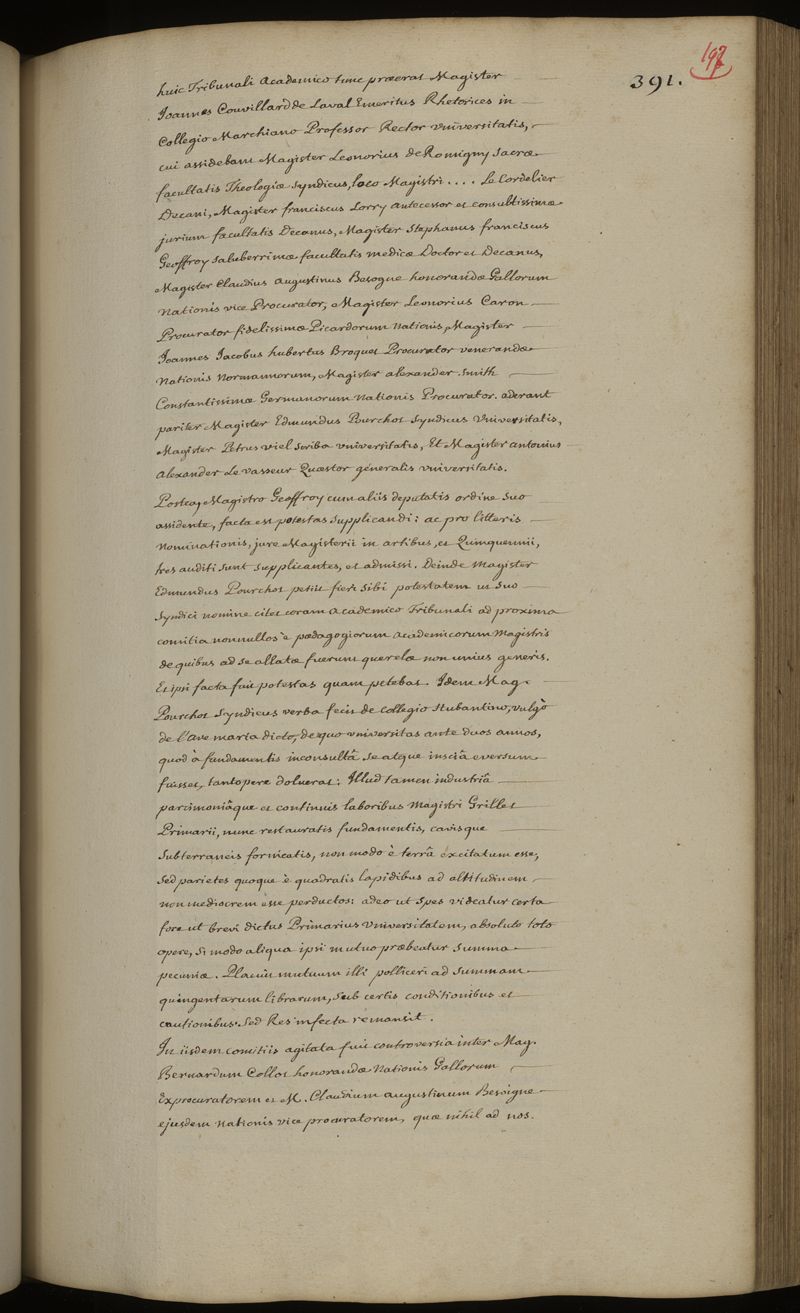 197
391.
huic Tribunali Academico tunc præerat Magister
Joannes Couvillard de Laval Emeritus Rhetorices in
Collegio Marchiano Professor Rector Universitatis,
cui assidebant Magister Leonorius de Romigny Sacræ
facultatis Theologiæ Syndicus, loco Magistri .... Le Cordelier
Decani, Magister franciscus Lorry Antecessor et consultissimæ
jurium facultatis Decanus, Magister Stephanus franciscus
Geoffroy Saluberrimæ facultatis medicæ Doctor et Decanus,
Magister Claudius Augustinus Besogne honorandæ Gallorum
Nationis vice Procurator, Magister Leonorius Caron
Procurator fidelissimæ Picardorum Nationis, Magister
Joannes Jacobus hubertus Broquet Procurator venerandæ
Nationis Normannorum, Magister alexander Smith
Constantissimæ Germanorum Nationis Procurator. aderant
pariter Magister Edmundus Pourchot Syndicus Universitatis,
Magister Petrus Viel Scriba Universitatis, Et Magister antonius
Alexander Le Vasseur Quæstor generalis Universitatis.
Postea, Magistro Geoffroy cum aliis deputatis ordine suo
assidente, facta est potestas Supplicandi: ac pro litteris
Nominationis, jure Magisterii in artibus, et Quinquennii,
tres auditi sunt supplicantes, et admissi. Deinde Magister
Edmundus Pourchot petiit fieri sibi potestatem ut suo
Syndici nomine citet coram Academico Tribunali ad proxima
comitia nonnullos è pædagogiorum Academicorum Magistris
de quibus ad se allatæ fuerunt querelæ non unius generis.
Et ipsi facta fuit potestas quam petebat. Idem Mag.
Pourchot Syndicus verba fecit de Collegio Hubantino, vulgò
de l'Ave maria dicto, de quo Universitas ante duos annos,
quod à fundamentis inconsultâ se atque insciâ eversum
fuisset, tantopere doluerat: Illud tamen industriâ
parcimoniâque et continuis laboribus Magistri Grillet
Primarii, nunc restauratis fundamentis, cavisque
Subterraneis fornicatis, non modo è terrâ excitatum esse,
Sed parietes quoque è quadratis lapidibus ad altitudinem
non mediocrem esse perductos: adeo ut Spes videatur certa
fore ut brevi dictus Primarius Universitatem, absoluto toto
opere, Si modo aliqua ipsi mutuo præbeatur summa
pecuniæ. Placuit mutuum illi polliceri ad Summam
quingentarum librarum, Sub certis conditionibus et
cautionibus. Sed Res infecta remansit.
In iisdem comitiis agitata fuit controversia inter Mag.
Bernardum Collot honorandæ Nationis Gallorum
Exprocuratorem et M. Claudium Augustinum Besoigne
ejusdem Nationis vice procuratorem, quæ nihil ad nos.